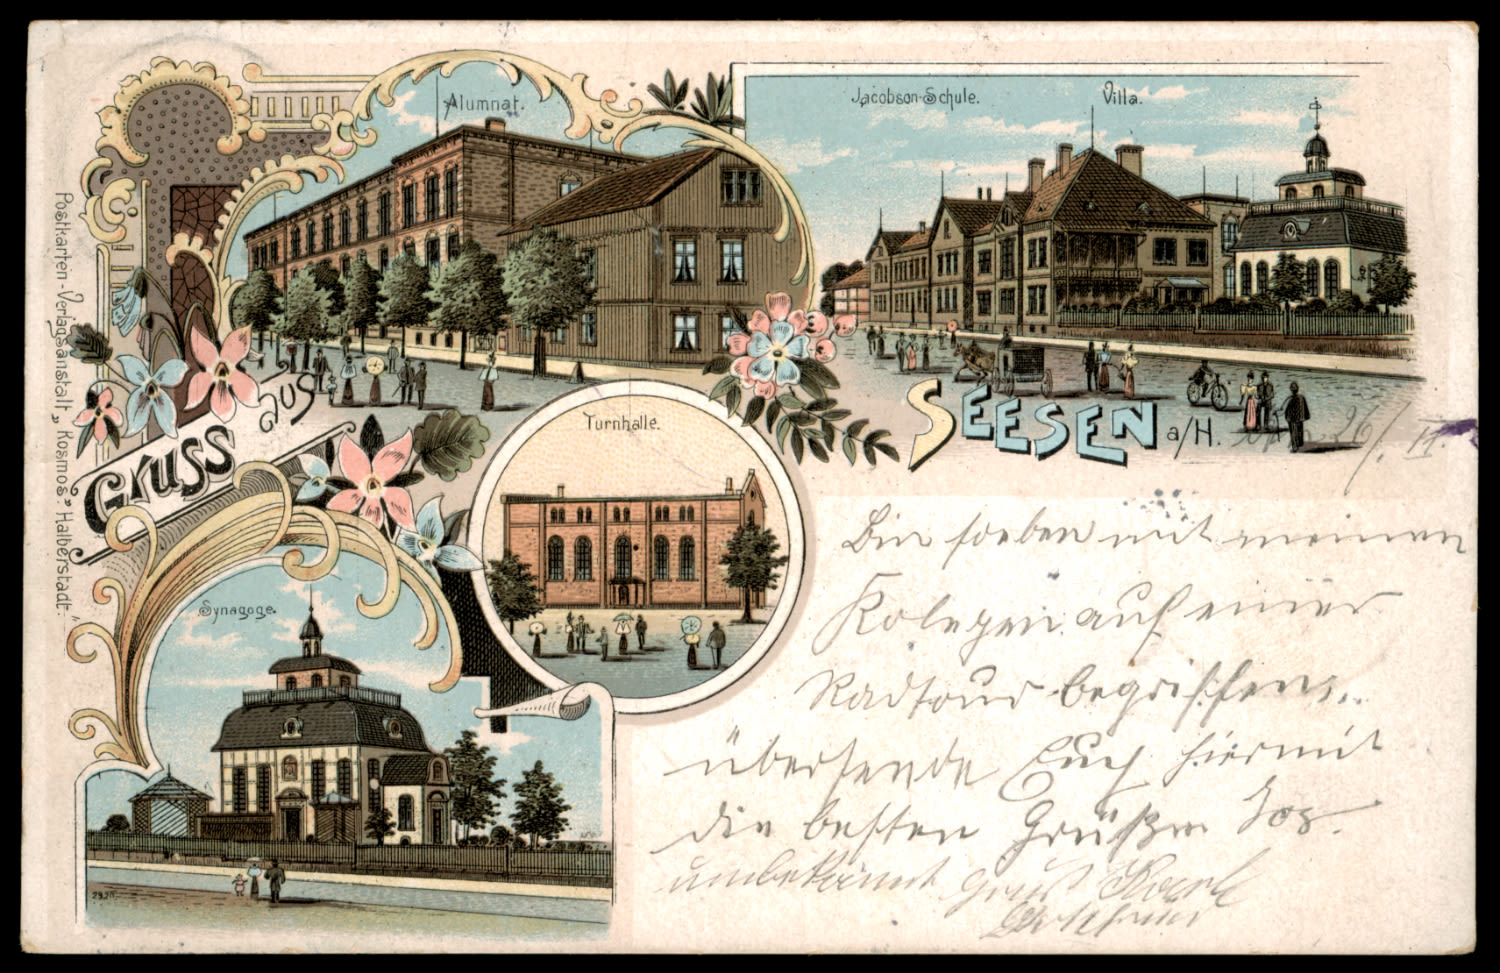 Alumnat.
Jacobson-Schule.
Villa.
Gruss aus
SEESEN a/H.
26/.
Turnhalle.
Synagoge.
Postkarten-Verlagsanstalt „Kosmos" Halberstadt.
Bin soeben mit meinen
Kolegen auf einer
Radtour begriffen,
übersende Euch hiermit
die besten Grüße Jos.
unbekannt Gruß